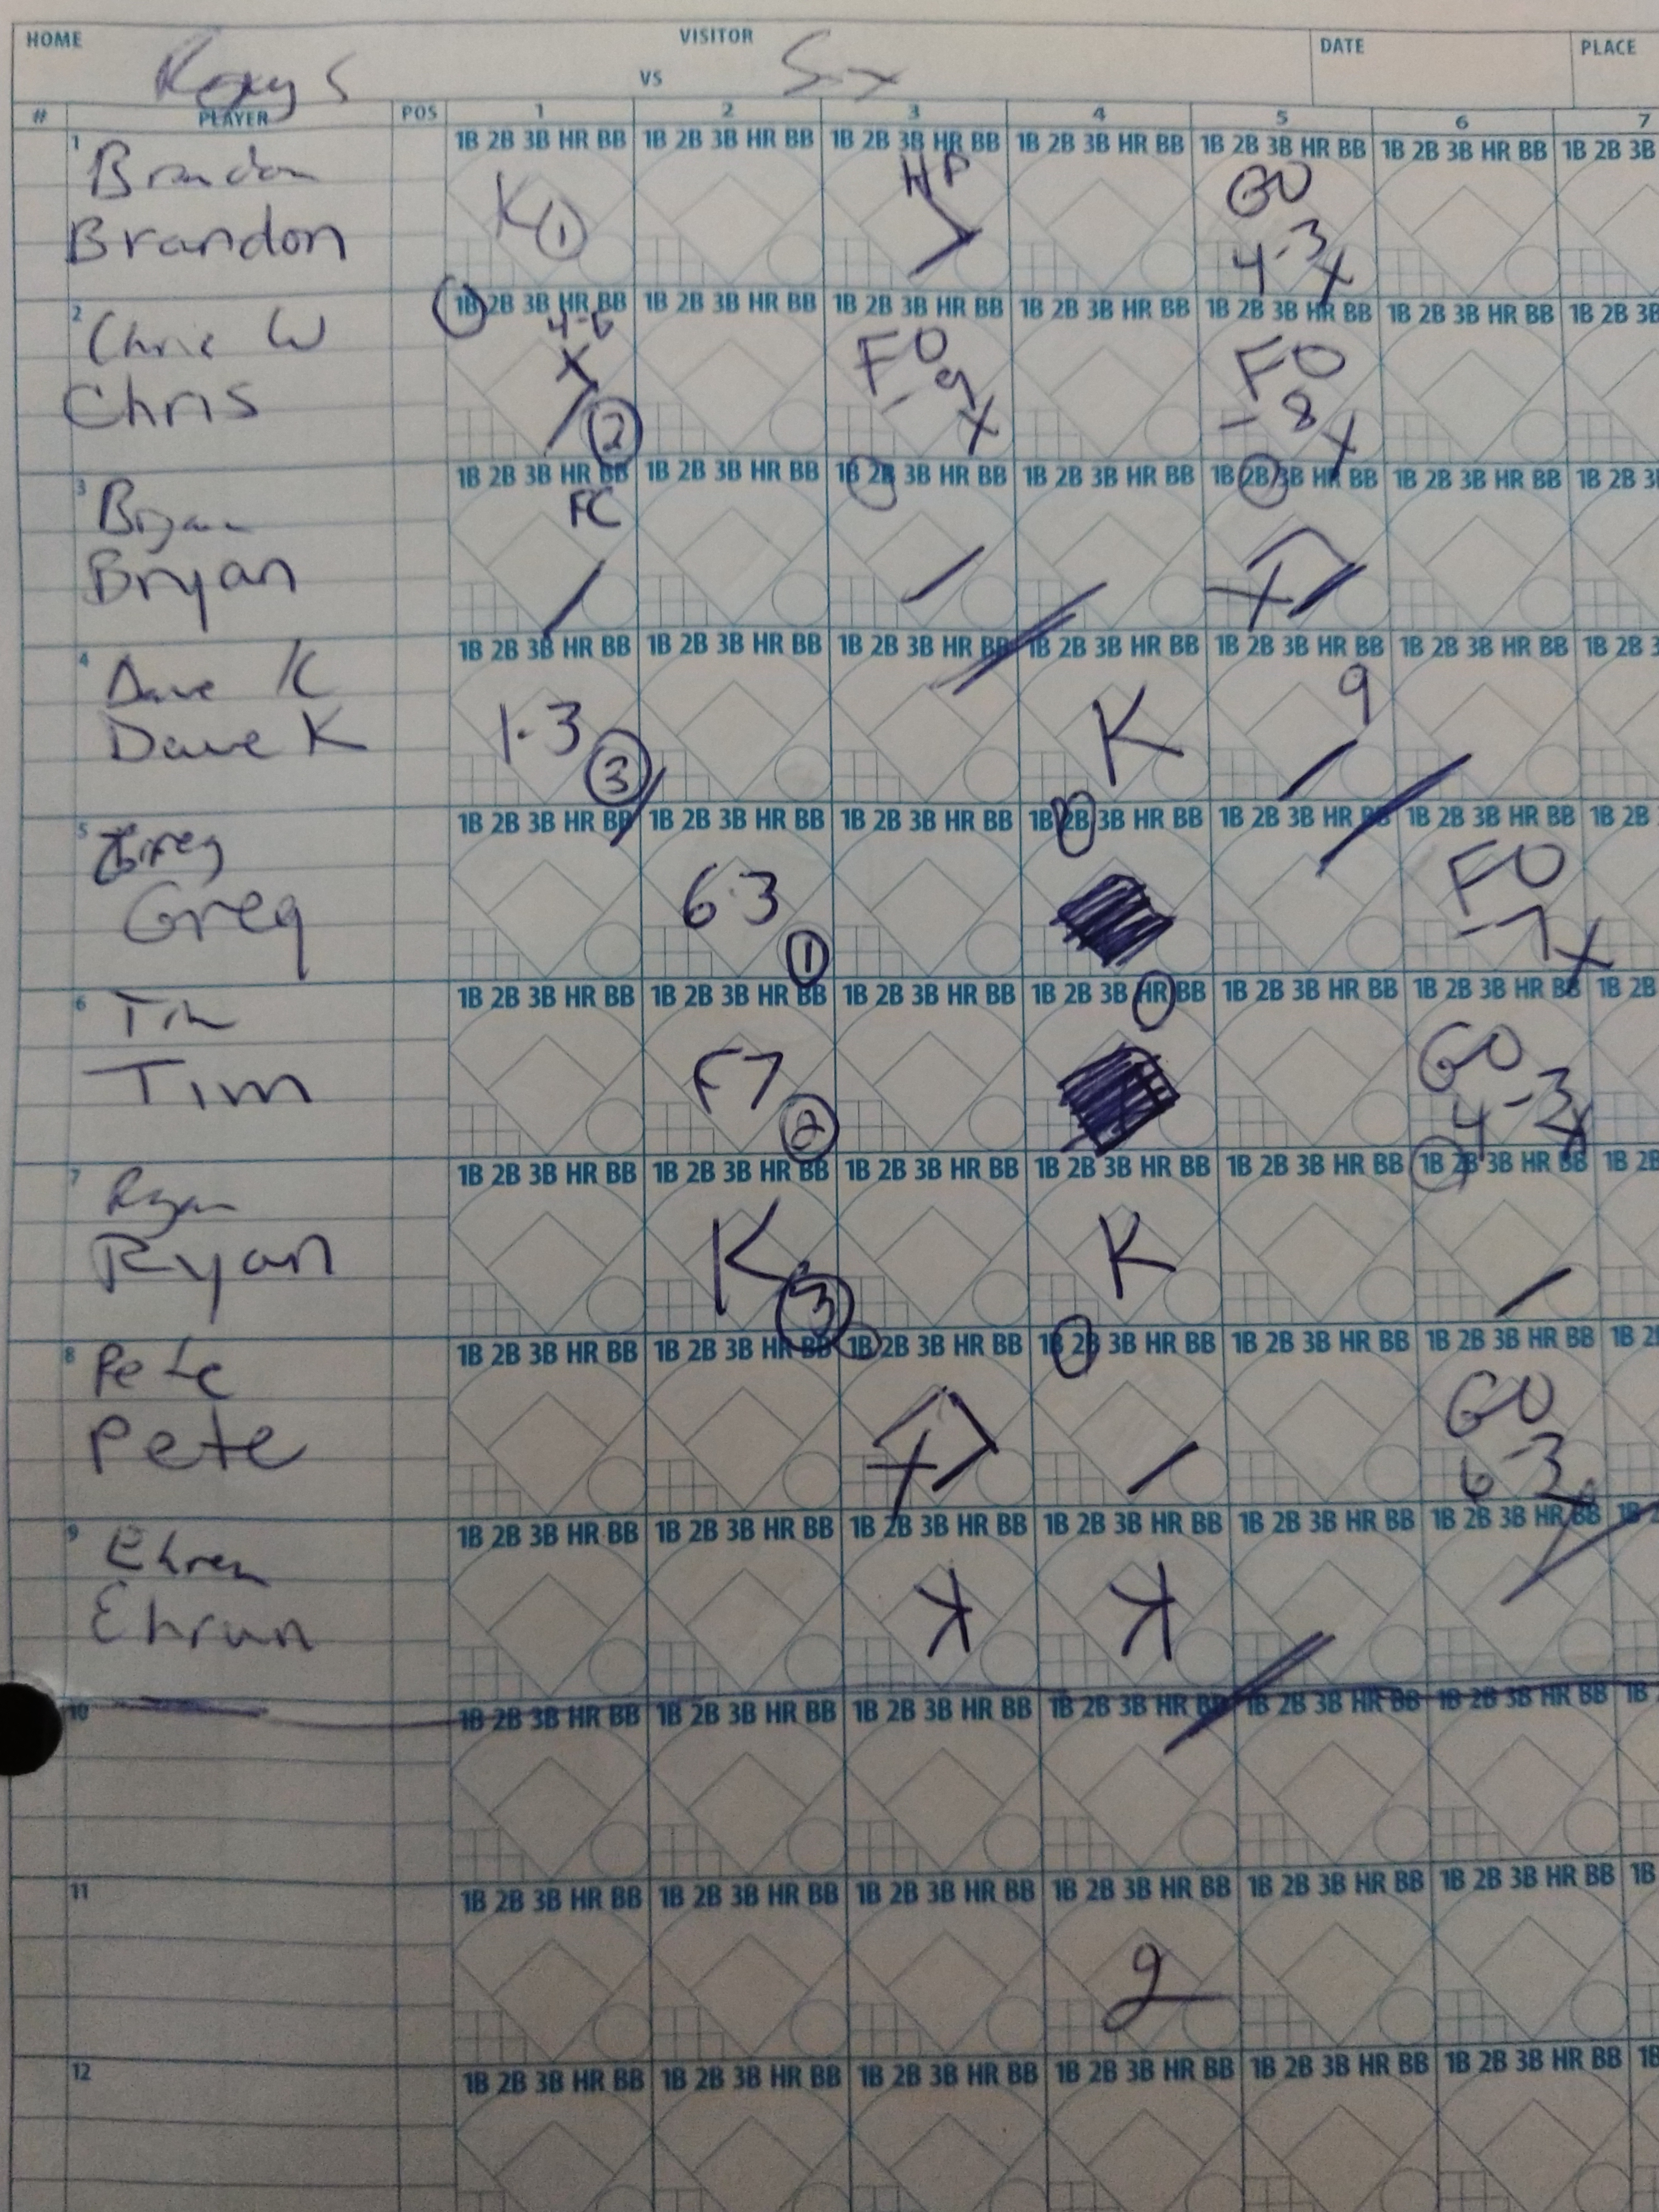 HOME VISITOR DATE PLACE
VS
# PLAYER POS 1 2 3 4 5 6 7
1 1B 2B 3B HR BB 1B 2B 3B HR BB 1B 2B 3B HR BB 1B 2B 3B HR BB 1B 2B 3B HR BB 1B 2B 3B HR BB 1B 2B 3B
Brandon K 1 HP GO
Brandon 4-3 X
2 1B 2B 3B HR BB 1B 2B 3B HR BB 1B 2B 3B HR BB 1B 2B 3B HR BB 1B 2B 3B HR BB 1B 2B 3B HR BB 1B 2B 3B
Chris W 4-6 X FO FO
Chris 2 -9 X -8 X
3 1B 2B 3B HR BB 1B 2B 3B HR BB 1B 2B 3B HR BB 1B 2B 3B HR BB 1B 2B 3B HR BB 1B 2B 3B HR BB 1B 2B 3
Bryan FC
Bryan X
4 1B 2B 3B HR BB 1B 2B 3B HR BB 1B 2B 3B HR BB 1B 2B 3B HR BB 1B 2B 3B HR BB 1B 2B 3B HR BB 1B 2B 3
Dave K 1-3 K 9
Dave K 3
5 1B 2B 3B HR BB 1B 2B 3B HR BB 1B 2B 3B HR BB 1B 2B 3B HR BB 1B 2B 3B HR BB 1B 2B 3B HR BB 1B 2B
Greg 6-3 FO
Greg 1 -7 X
6 1B 2B 3B HR BB 1B 2B 3B HR BB 1B 2B 3B HR BB 1B 2B 3B HR BB 1B 2B 3B HR BB 1B 2B 3B HR BB 1B 2B
Tim F7 GO
Tim 2 4-3 X
7 1B 2B 3B HR BB 1B 2B 3B HR BB 1B 2B 3B HR BB 1B 2B 3B HR BB 1B 2B 3B HR BB 1B 2B 3B HR BB 1B 2B
Ryan K K
Ryan 3
8 1B 2B 3B HR BB 1B 2B 3B HR BB 1B 2B 3B HR BB 1B 2B 3B HR BB 1B 2B 3B HR BB 1B 2B 3B HR BB 1B 2
Pete GO
Pete X 6-3
9 1B 2B 3B HR BB 1B 2B 3B HR BB 1B 2B 3B HR BB 1B 2B 3B HR BB 1B 2B 3B HR BB 1B 2B 3B HR BB 1B 2
Ehren K K
Ehrun
10 1B 2B 3B HR BB 1B 2B 3B HR BB 1B 2B 3B HR BB 1B 2B 3B HR BB 1B 2B 3B HR BB 1B 2B 3B HR BB 1B
11 1B 2B 3B HR BB 1B 2B 3B HR BB 1B 2B 3B HR BB 1B 2B 3B HR BB 1B 2B 3B HR BB 1B 2B 3B HR BB 1B
2
12 1B 2B 3B HR BB 1B 2B 3B HR BB 1B 2B 3B HR BB 1B 2B 3B HR BB 1B 2B 3B HR BB 1B 2B 3B HR BB 1B